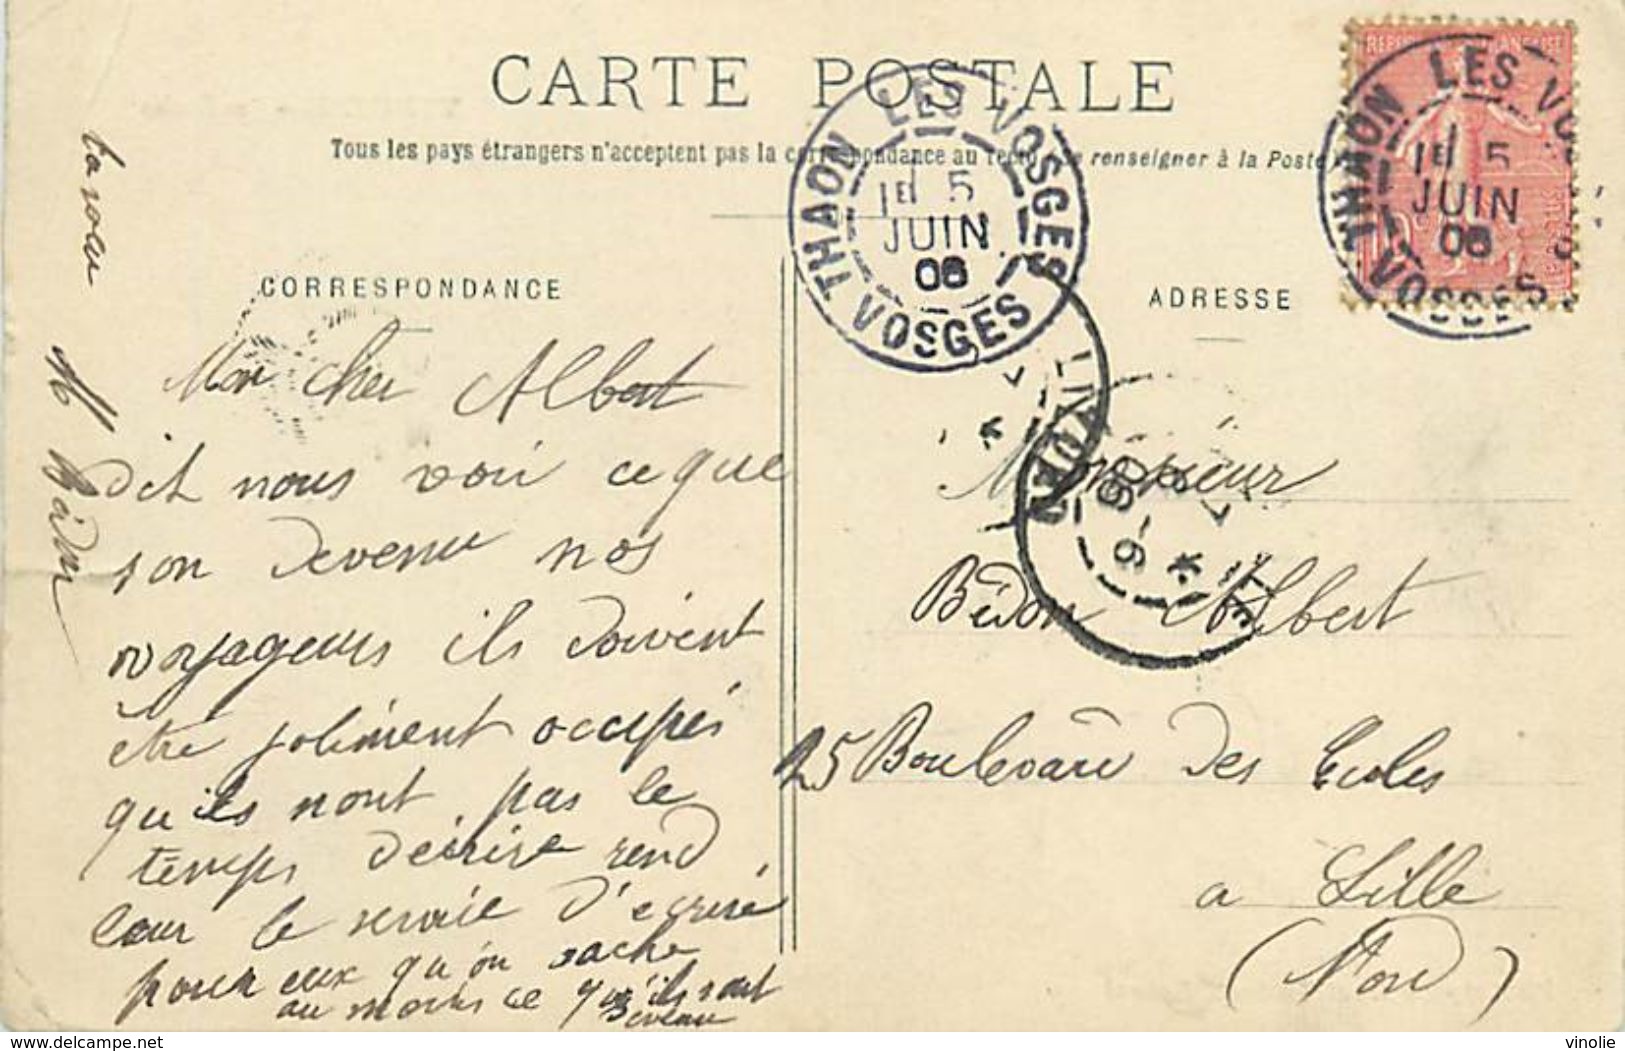 CARTE POSTALE
Tous les pays étrangers n'acceptent pas la correspondance au recto, se renseigner à la Poste
CORRESPONDANCE
ADRESSE
REPUBLIQUE FRANÇAISE
THAON LES VOSGES
1E 5
JUIN
06
VOSGES
THAON LES VOSGES
1E 5
JUIN
06
VOSGES
9-
06
Mon cher Albert
dit nous voir ce que
son devenu nos
voyageurs ils doivent
etre joliment occupés
qu'ils nont pas le
temps décrire rend
leur le servic d'ecrire
pour eux qu'on sache
au moins ce qu'ils sont
devenu
ta soeur
M
Monsieur
Bédon Albert
25 Boulevard des Ecoles
a Lille
(Nord)
delcampe.net
vinolie